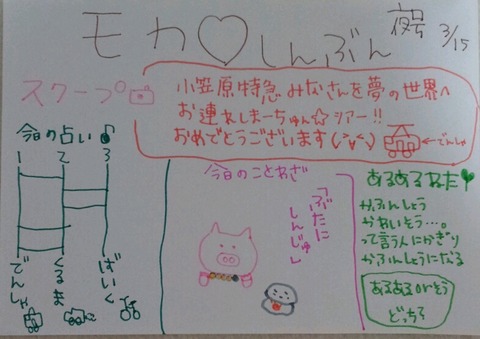 モカ♡しんぶん 夜号 3/15
スクープ
小笠原特急 みなさんを夢の世界へ
お連れしまーちゅん☆ツアー!!
おめでとうございます(^v^)
←でんしゃ
今日の占い♪
1 2 3
でんしゃ
くるま
ばいく
今日のことわざ
「ぶたに
しんじゅ」
あるあるねた
かふんしょう
かわいそう…。
って言う人にかぎり
かふんしょうになる
あるあるorそう
どっちろ